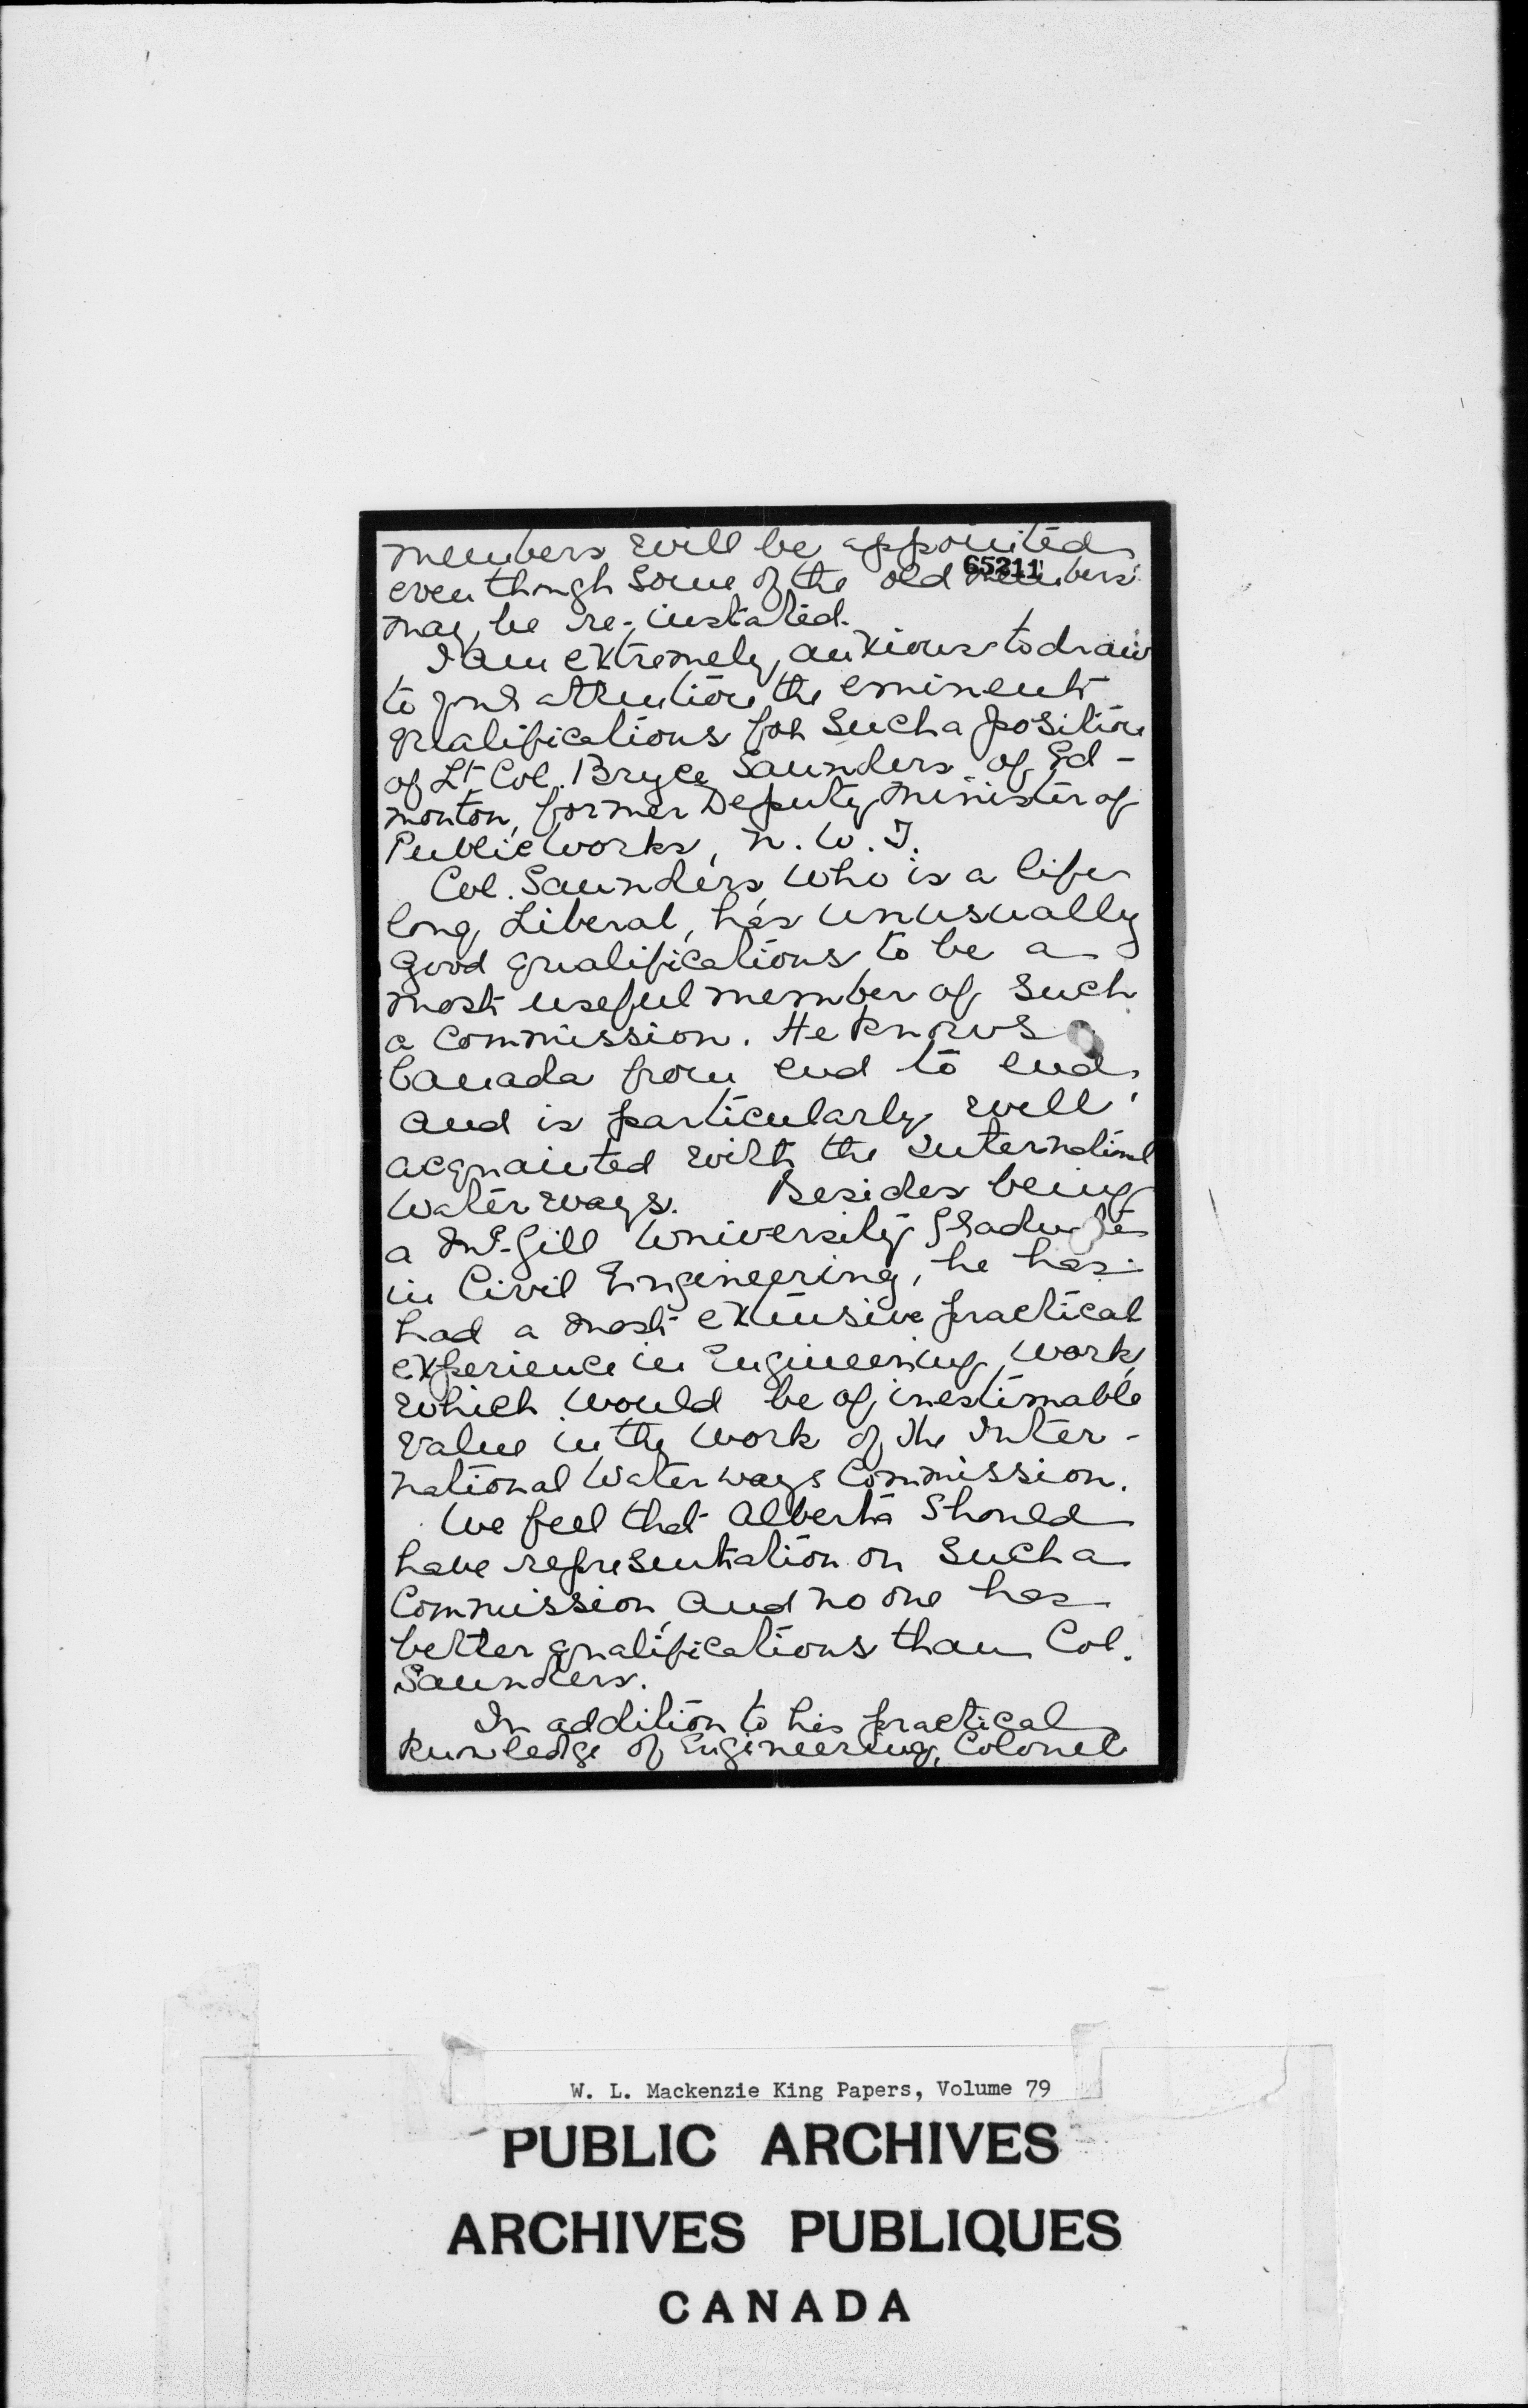 members will be appointed
65211
even though some of the old members
may be re-instated.
I am extremely anxious to draw
to your attention the eminent
qualifications for such a position
of Lt Col. Bryce Saunders of Ed-
monton, former Deputy Minister of
Public Works, N. W. T.
Col. Saunders, who is a life
long Liberal, has unusually
good qualifications to be a
most useful member of such
a commission. He knows
Canada from end to end,
and is particularly well
acquainted with the International
Waterways. Besides being
a McGill University graduate
in Civil Engineering, he has
had a most extensive practical
experience in Engineering work,
which would be of inestimable
value in the work of the Inter-
national Waterways Commission.
We feel that Alberta should
have representation on such a
Commission and no one has
better qualifications than Col.
Saunders.
In addition to his practical
knowledge of Engineering, Colonel
W. L. Mackenzie King Papers, Volume 79
PUBLIC ARCHIVES
ARCHIVES PUBLIQUES
CANADA